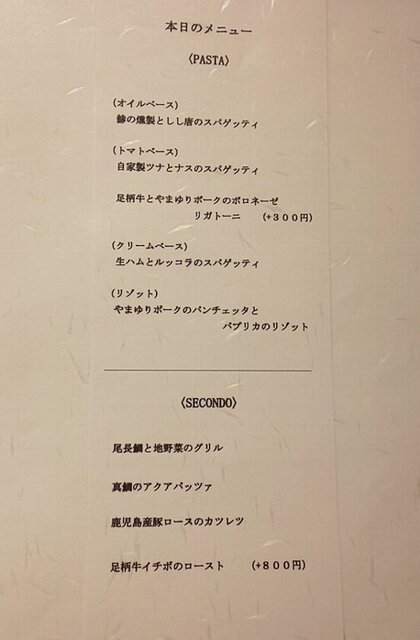 本日のメニュー
〈PASTA〉
(オイルベース)
鯵の燻製としし唐のスパゲッティ
(トマトベース)
自家製ツナとナスのスパゲッティ
足柄牛とやまゆりポークのボロネーゼ
リガトーニ (+300円)
(クリームベース)
生ハムとルッコラのスパゲッティ
(リゾット)
やまゆりポークのパンチェッタと
パプリカのリゾット
〈SECONDO〉
尾長鯛と地野菜のグリル
真鯛のアクアパッツァ
鹿児島産豚ロースのカツレツ
足柄牛イチボのロースト (+800円)